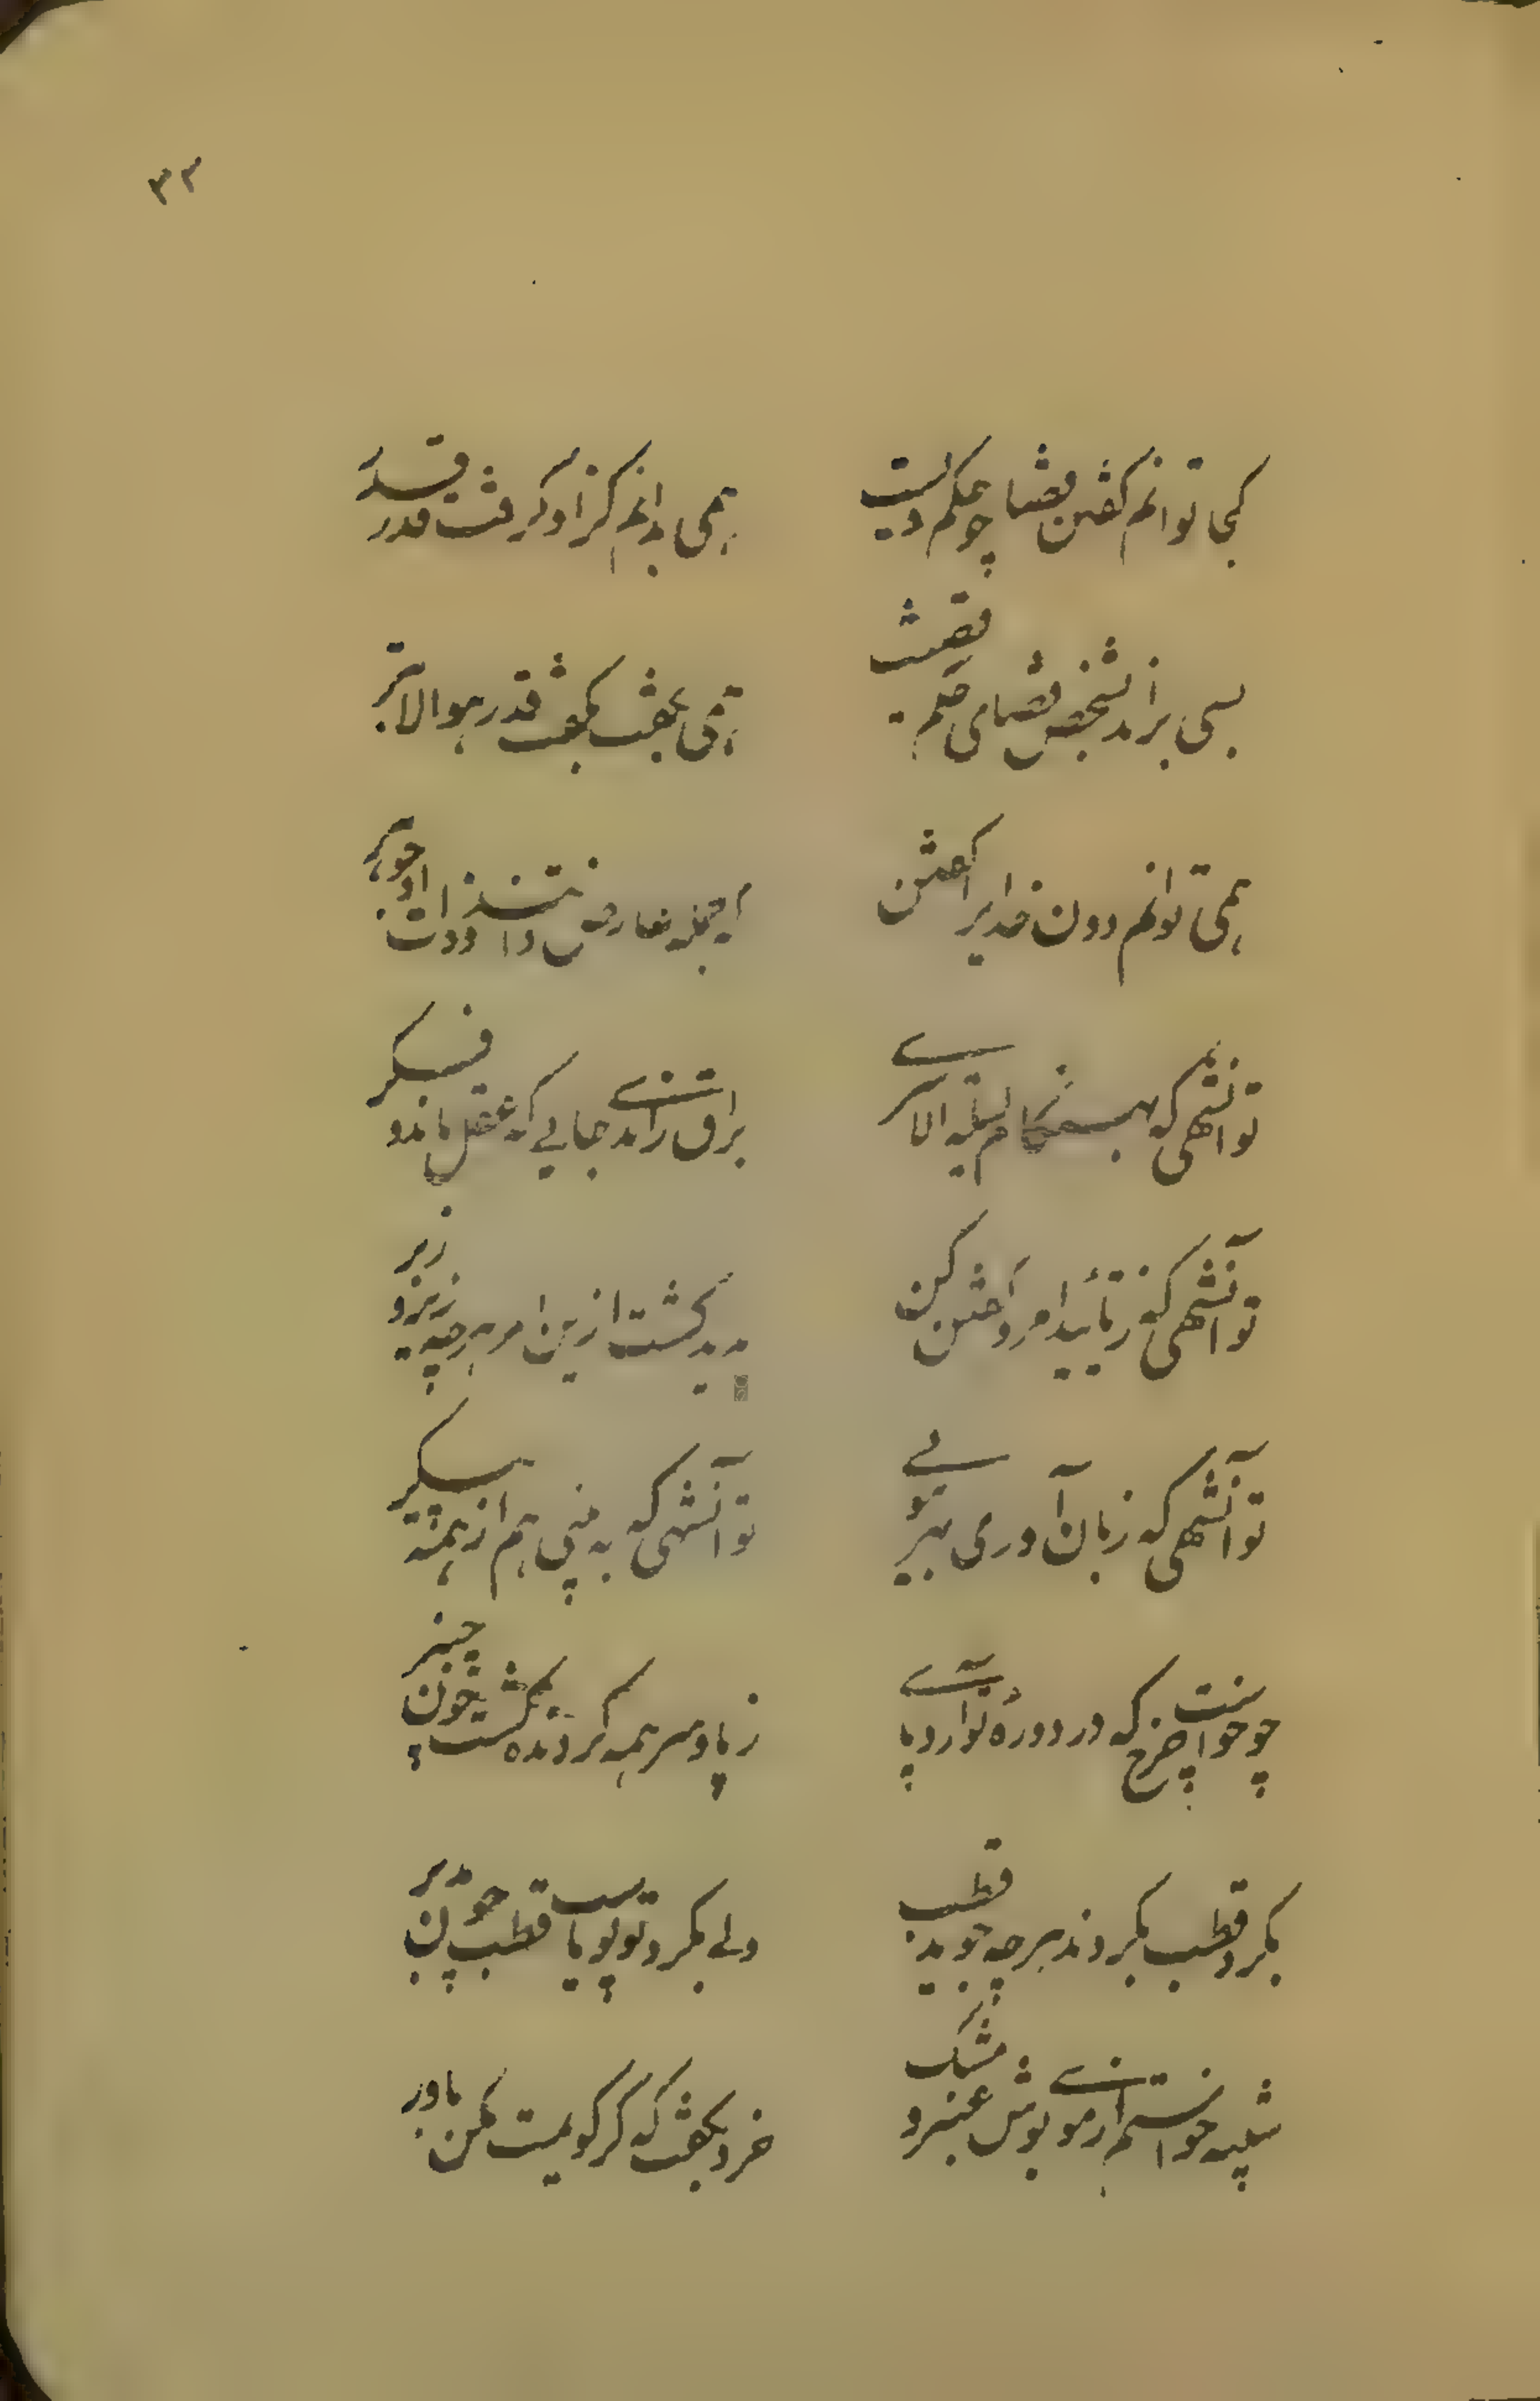 ۳۲
کجا توانم گفتن قضا چو حکم دلیست
همی بدانم کز او گرفت قدر قدر
بسی براند شخص قضای حکم نقشت
همی بگفت قدر هوالابتر
همی توانم دون خدایرا گفتن
ز جمله عارض و ذات او چو
تو آنشهی که بهنگام لیلة الاسری
براق راندی جایی که عقل ماند و فکر
تو آنشهی کز تأیید امر و خشن کن
پدید گشت ازین امر هرچه زیر و زبر
تو آنشهی که زبان آوری بهر مویی
تو آنشهی که به بینی هم از همه پیکر
چو خواست چرخ که در دورهٔ تو آرد پای
ز پا و سر همه گردنده گشت چون چنبر
بگرد قطب بگردند هرچه جوید قطب
ولی بگرد تو پویاست قطب چون
شبیه خواستم از موی بوش عنبر و مشک
خرد بگفت که گر گویمت مکن باور